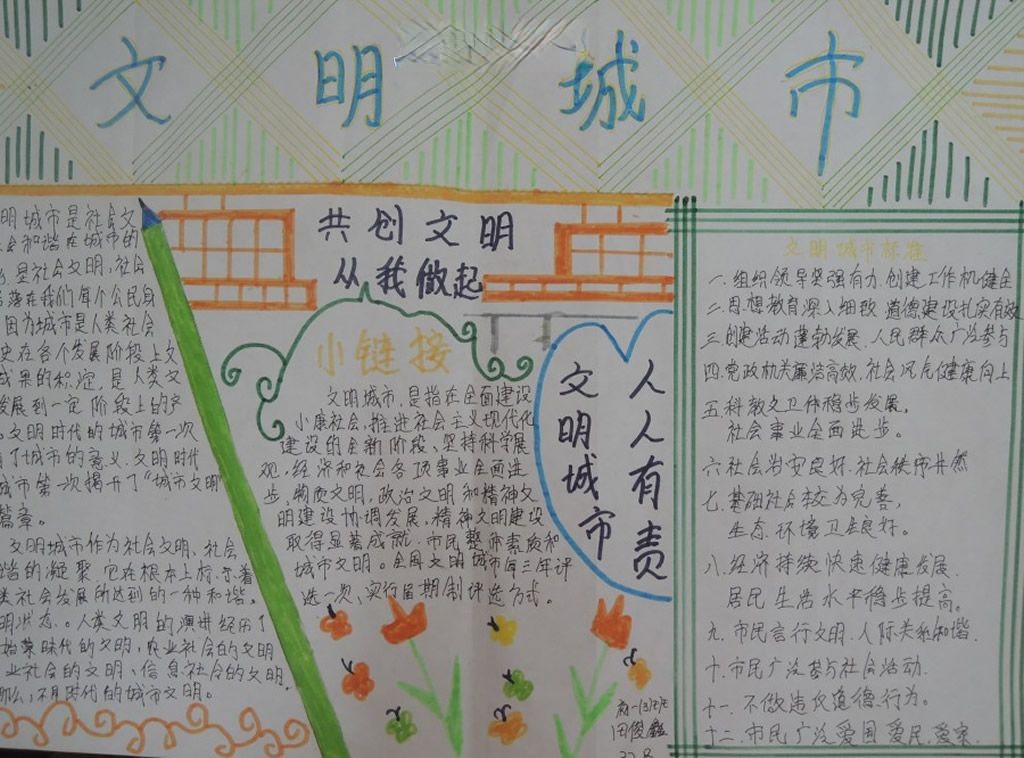 文明城市
明城市是社会文
会和谐在城市的
是社会文明,社会
落在我们每个公民身
因为城市是人类社会
史在各个发展阶段上文
成果的积淀,是人类文
发展到一定阶段上的产
。文明时代的城市第一次
了城市的意义.文明时代
城市第一次揭开了“城市文明”
篇章。
文明城市作为社会文明、社会
谐的凝聚,它在根本上标示着
类社会发展所达到的一种和谐、
明状态。人类文明的演进经历了
始蒙昧时代的文明,农业社会的文明
业社会的文明、信息社会的文明,
那么,不同时代的城市文明。
共创文明
从我做起
小链接
文明城市,是指在全面建设
小康社会,推进社会主义现代化
建设的全新阶段、坚持科学展
观,经济和社会各项事业全面进
步,物质文明,政治文明和精神文
明建设协调发展,精神文明建设
取得显著成就,市民整体素质和
城市文明。全国文明城市每三年评
选一次,实行届期制评选方式。
人人有责
文明城市
田俊鑫
文明城市标准
一.组织领导坚强有力.创建工作机健全
二.思想教育深入细致 道德建设扎实有效
三.创建活动蓬勃发展.人民群众广泛参与
四.党政机关廉洁高效.社会风气健康向上
五科教文卫体稳步发展,
社会事业全面进步。
六社会治安良好.社会秩序井然
七.基础社会较为完善,
生态.环境卫生良好。
八.经济持续快速健康发展.
居民生活水平稳步提高。
九.市民言行文明.人际关系和谐.
十.市民广泛参与社会活动.
十一.不做违反道德行为。
十二.市民广泛爱国.爱民.爱家.